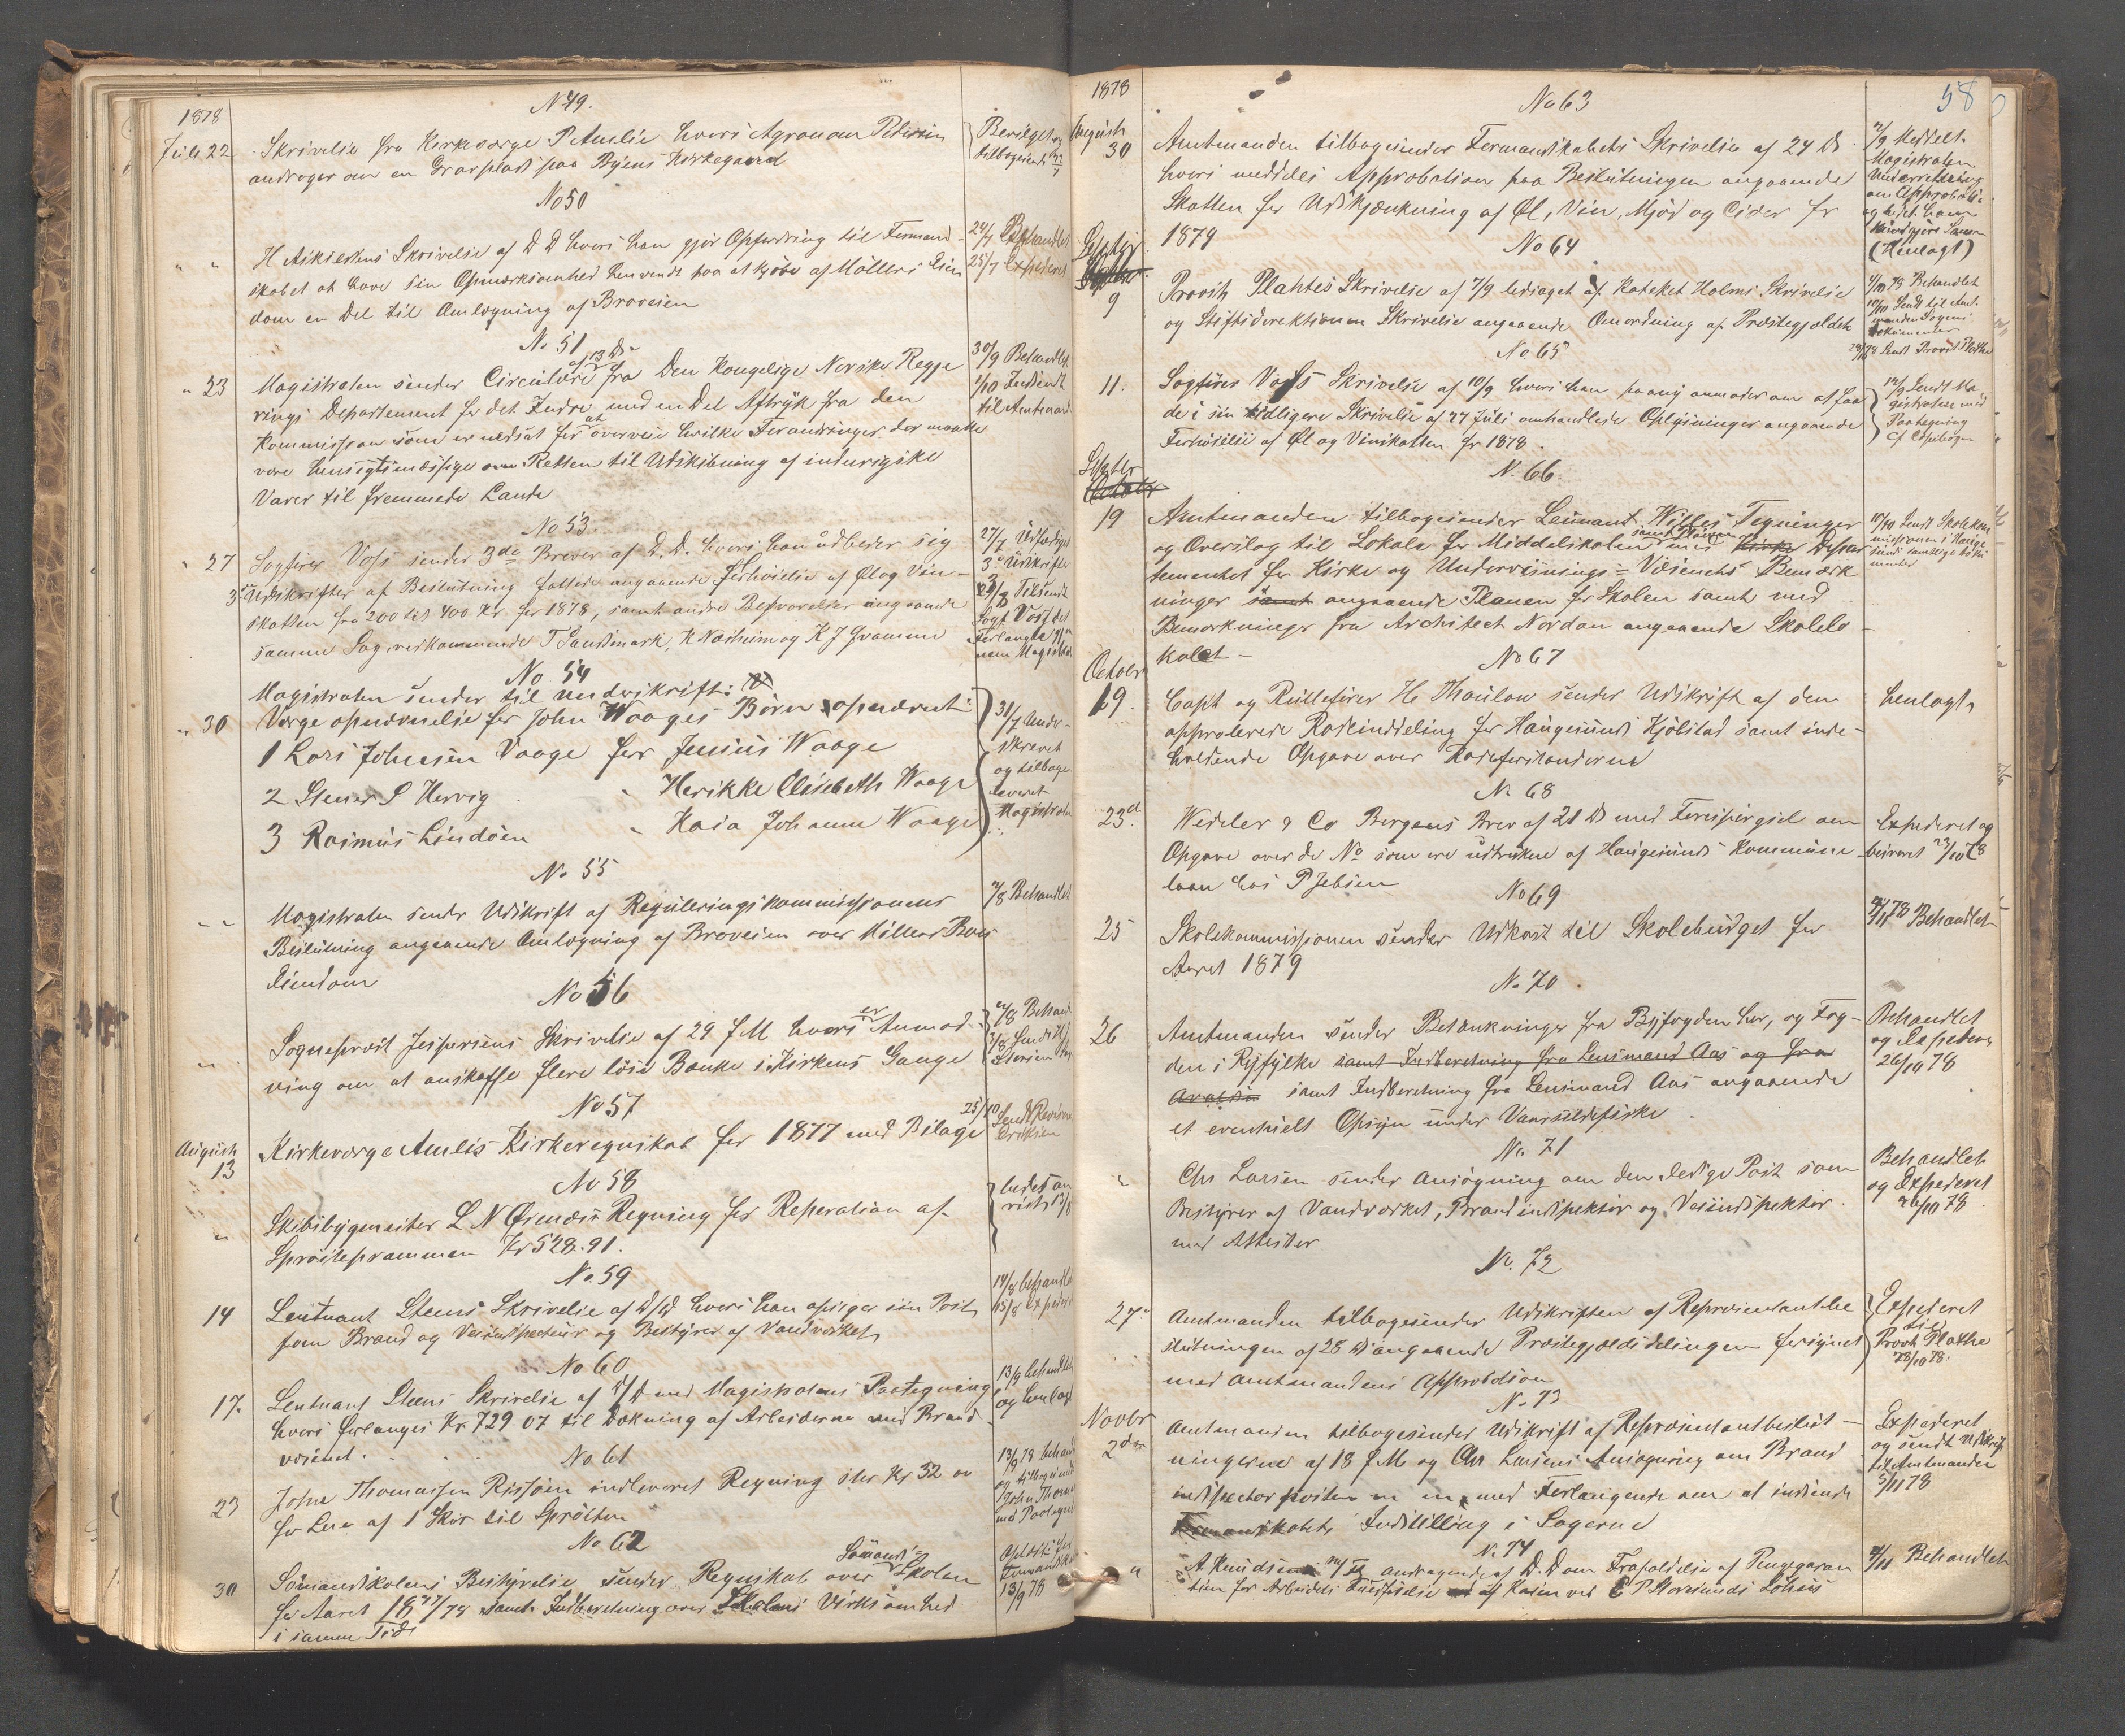 1878
N 49.
Juli 22 Skrivelse fra Kirkeværge P Amlie hvori Agronom Petersen
androger om en Gravplads paa Byens Kirkegaard
Bevilget og
tilbagesendt 22/7
No 50
" " H Askildsens Skrivelse af D D hvori han gjør Opfordring til Formand-
skabet at have sin Opmærksomhed henvendt paa at kjøbe af Møllers Eien
dom en Del til Omlægning af Broveien
24/7 Behandlet
25/7 Expederet
No 51
" 23 Magistraten sender Circulære af 13 Ds fra Den Kongelige Norske Regje
rings Departement for det Indre med en Del Aftryk fra den
Kommission som er nedsat for at overveie hvilke Forandringer der maatte
være hensigtsmæssige om Retten til Udskibning af indenrigske
Varer til fremmede Lande
30/9 Behandlet
1/10 Indsendt
til Amtmand
No 53.
" 27 Sagfører Voss sender 3de Brever af D.D. hvori han udbeder sig
3de Udskrifter af Beslutning fattede angaaende Forhøielse af Øl og Vin-
skatten fra 200 til 400 Kr for 1878, samt andre Besvarelser angaaende
samme Sag vedkommende T Sandsmark, K Næsheim og K J Gramme
27/7 Udfærdiget
3de Udskrifter
23/8 Tilsendt
Sagf Voss det
forlangte gjen
nem Magistrat
No 54
Magistraten sender til underskrift:
" 30 Værge opnævnelse for John Waages Børn opnævnt:
1 Lars Johnsen Vaage for Jenius Waage
2 Stener S Hervig " Henrikke Elisebeth Waage
3 Rasmus Lindøen " Kaia Johanne Waage
31/7 Under-
skrevet
og tilbage
leveret
Magistraten
No 55
" " Magistraten sender Udskrift af Reguleringskommissionens
Beslutning angaaende Omlægning af Broveien over Møllers Boes
Eiendom
2/8 Behandlet
No 56
" Sogneprest Jespersens Skrivelse af 29 f M hvori er Anmod-
ning om at anskaffe flere løse Bænke i Kirkens Gange
2/8 Behand
No 57
August
13 Kirkeværge Amlies Kirkeregnskab for 1877 med Bilage
25/10 Sendt Revisor
Eriksen
No 58
" Skibsbygmester L N Ørnæss Regning for Reperation af
Sprøiteprammen Kr 528.91.
No. 59
14 Leutnant Steens Skrivelse af D/D hvori han opsiger sin Post
som Brand og Veiinspecteur og Bestyrer af Vandværket
14/8 behandlet
15/8 Expederet
No 60
17. Leutnant Steens Skrivelse af D/D med Magistratens Paategning
hvori forlanges Kr 729.07 til Dækning af Arbeiderne ved Brand-
væsenet.
13/9 behandlet
og henlagt
No 61
23 John Thomassen Rissøen indleveret Regning stor Kr 32 00
for Leie af 1 Skur til Sprøiten
13/9 78 behand
og tilbagesendt
John Thoma
med Paategni
No 62
30 Sømandskolens Bestyrelse sender Regnskab over Sømands Skolen
for Aaret 1877/78 samt Indberetning over Skolens Virksomhed
i samme Tid
13/9 78
1878
58
No 63
August
30 Amtmanden tilbagesender Formandskabets Skrivelse af 24 Ds
hvori meddeles Approbation paa Beslutningen angaaende
Skatten for Udskjænkning af Øl, Vin, Mjød og Cider for
1879
2/9 Meddelt
Magistraten
Underretning
om Approbatio
(Henlagt)
No 64
Septbr
9 Provst Plahtes Skrivelse af 7/9 ledsaget af Kateket Holms Skrivelse
og Stiftsdirektionen Skrivelse angaaende Omordning af Præstegjældet
1/10 78 Behandlet
10/10 Sendt til Amt-
manden Sagens
Dokumenter
Sendt Provst Plathe
No 65
11. Sagfører Voss Skrivelse af 10/9 hvori han paany anmoder om at faa
de i sin tidligere Skrivelse af 27 Juli omhandlede Oplysninger angaaende
Forhøielse af Øl og Vinskatten for 1878.
12/9 Sendt Ma
gistraten med
Paategning
cf Copibogen
N. 66
Septbr
19 Amtmanden tilbagesender Leunant Willes Tegninger
og Overslag til Lokale for Middelskolen samt Planen med Depar
tementet for Kirke og Undervisnings-Væsenets Bemærk
ninger angaaende Planen for Skolen samt med
Bemærkninger fra Architect Nordan angaaende Skolelo-
kalet -
10/10 Sendt Skolekom
missionen i Hauge
sund samtlige doku
menter
No 67
October
19. Capt og Rullefører H. Thaulow sender Udskrift af den
approberede Rodeinddeling for Haugesunds Kjøbstad samt inde-
holdende Opgave over Rodeforstanderne
henlagt
No 68
23d. Wedeler & Co Bergens Brev af 21 Ds med Forespørgsel om
Opgave over de No som ere udtrukne af Haugesunds Kommune
laan hos P Jebsen
Expederet og
besvaret 23/10 78
No 69
25 Skolekommissionen sender Udkast til Skolebudget for
Aaret 1879
78 Behandlet
No. 70
26 Amtmanden sender Betænkninger fra Byfogden her, og Fog-
den i Ryfylke samt Indberetning fra Lensmand Aas og fra
samt Indberetning fra Lensmand Aas angaaende
et eventuelt Opsyn under Vaarsildefiske
Behandlet
og Expederet
26/10 78
No. 71
" Chr Larsen sender Ansøgning om den ledige Post som
Bestyrer af Vandværket, Brandinspektør og Veiinspektør
med Attester
Behandlet
og Expederet
26/10 78
No. 72
27. Amtmanden tilbagesender Udskriften af Repræsentantbe
slutningen af 28 Ds angaaende Præstegjældsdelingen forsynet
med Amtmandens Approbation
Expederet
til
Provst Plathe
28/10 78.
N. 73
Novbr
2den Amtmanden tilbagesender Udskrift af Repræsentantbeslut-
ningerne af 18 f M og Chr Larsens Ansøgning om Brand
inspectorposten m m, med Forlangende om at indsende
Formandskabets Indstilling i Sagerne
Expederet
og sendt Udskrift
til Amtmanden
5/11 78
N. 74
" A Knudsen andragende af D.D om Frafaldelse af Pengegaran
tien for Arbeidets Udførelse af Kaien ved P Storesunds
Behandlet